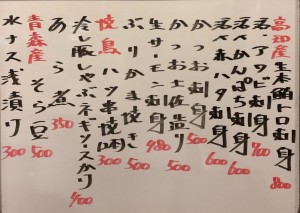 高知産 生本鮪トロ刺身 800
活〆アワビ刺身 700
活〆かんぱち刺身 600
活〆赤ハタ刺身 600
かつお刺身 500
かつお土佐造り 500
生サーモン刺身 480
ぶりかま焼き 500
焼鳥 ハツ串焼 300
冷し豚しゃぶネギソースかけ 400
あら煮 350
青森産 そら豆 500
水ナス浅漬け 300